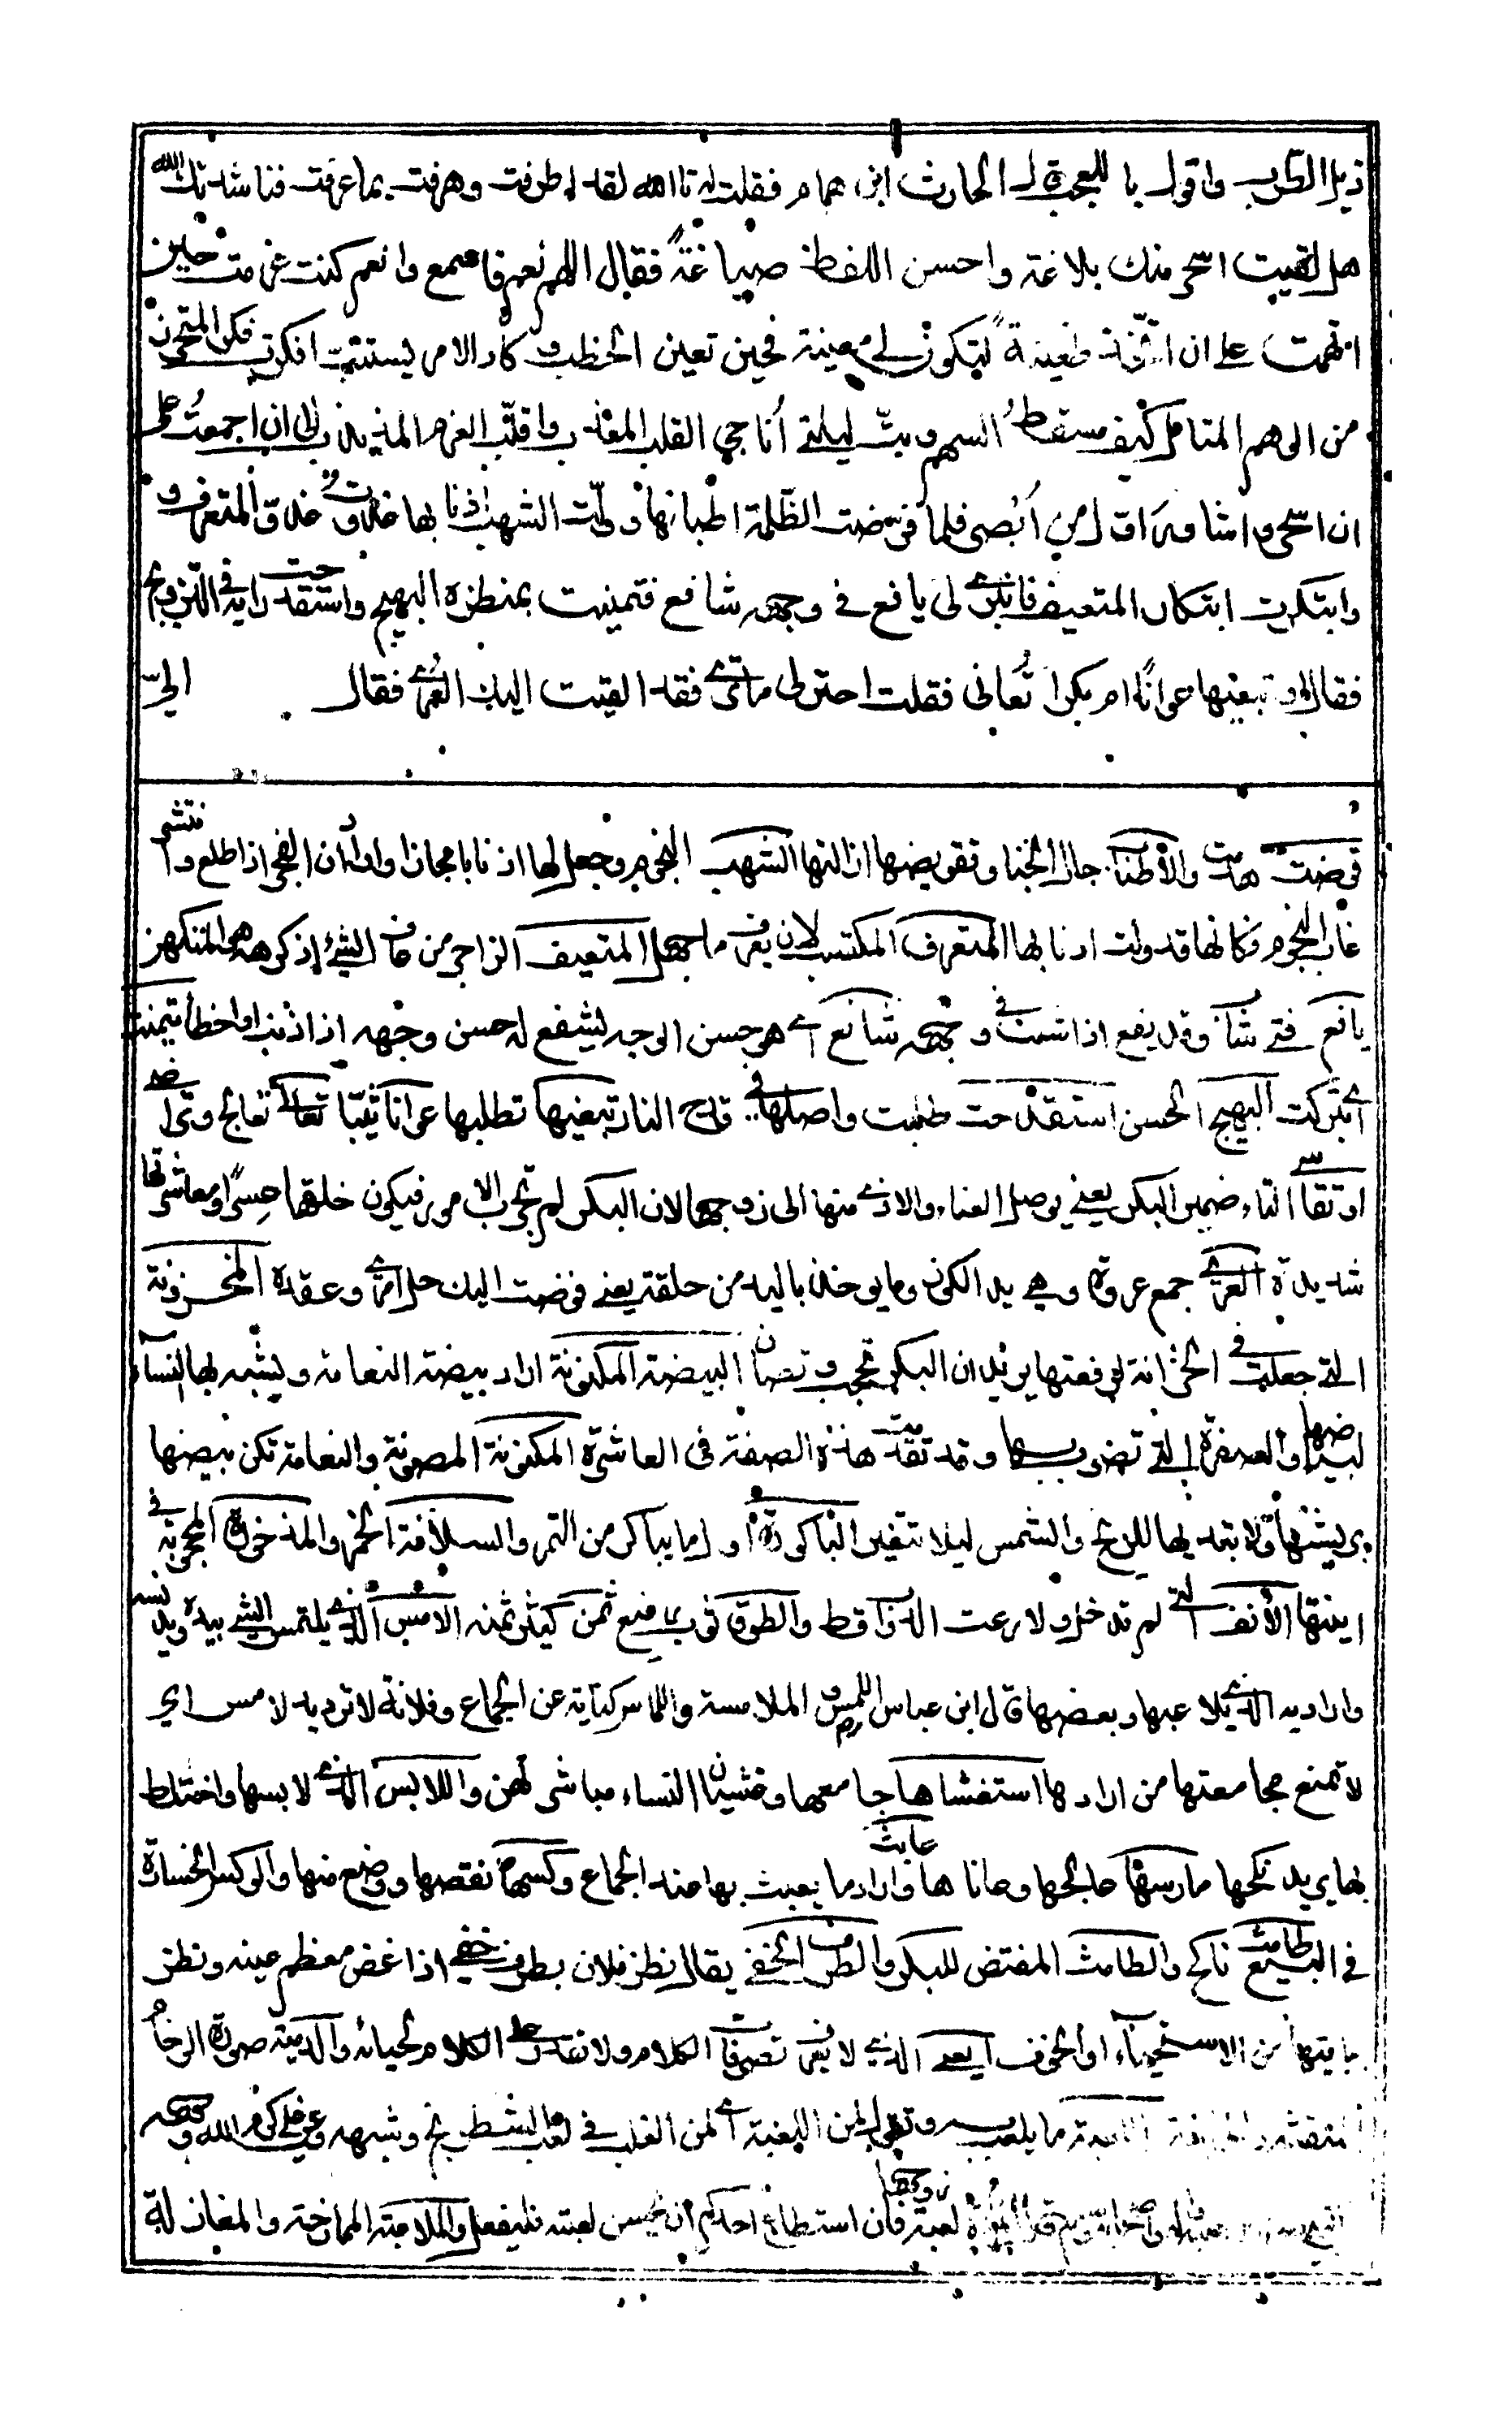 ذيل الطرب واقول يا للعجب قال الحارث ابن همام فقلت له تا الله لقد اطرفت وهرفت بما عرفت فناشدتك الله
هل لقيت اسحر منك بلاغة واحسن اللفظ صياغةً فقال اللهم نعم فاسمع وانعم كنت عزمت حين
اتهمت على ان اتخذ ظعينةً لتكون لي معينة فحين تعين الخطب وكاد الامر يستتب افكرت فكر المتحرز
من الوهم المتامل كيف مسقطُ السهم وبتّ ليلتي أناجي القلب المعذب واقلّب العزم المذبذب الى ان اجمعتُ على
ان اسحر واشاور اول من أبصر فلما قوّضت الظّلمة اطنابها وولّت الشهب اذنابها غدوت غدوّ المتعرف و
وابتكرت ابتكار المتعيف فانبرى لي يافع في وجهه شافع فتمينت بمنظره البهيج واستقدحت رايه في التزويج
فقال او تبغيها عوانًا ام بكرا تُعانى فقلت اختر لي ما ترى فقد القيت اليك العُرى فقال اليّ
قوضت هدمت والأطناب حبال الخبا وتقويضها ازالتها الشهب النجوم وجعل لها اذنابا مجازا واراد ان الفجر اذا طلع وانتشر
غاب النجوم فكانها قد ولت اذنابها المتعرف المكتسب لان يعرف ما جهل المتعيف الزاجر من عاف الشيء إذ كرهه هو المتكهن
يافع فتى شاب وقد يفع اذا شب في وجهه شافع اى هو حسن الوجه ليشفع له حسن وجهه اذا اذنب او اخطأ تيمنت
اى تبركت البهيج الحسن استقدحت طلبت واصلها في قدح النار تبغيها تطلبها عوانا ثيّبا تعانى تعالج وترا ض
او تقاسي التاء ضمير البكر يعني يوصل العناء والاذى منها الى زوجها لان البكر لم تجرب الامور فيكون خلقها حِسًّا ومعاشرتها
شديدة العرى جمع عروة وهي يد الكوز وما يوخذ باليد من حلقة يعني فوضت اليك حل امرى وعقده المخزونة
التي جعلت في الخزانة لرفعتها يريد ان البكر تحجب وتصان البيضة المكنونة اراد بيضة النعامة ويشبه بها النساء
لبياضها والصفرة التي تضرب بها وقد تقدمت هذه الصفة في العاشرة المكنونة المصونة والنعامة تكن بيضها
بريشها ولا تبديها للريح والشمس ليلا تتغير الباكورة اول ما يباكر من التمر والسلافة الخمر والمذخورة المخبوة في
اينتها الأنف التي لم تدخل ولا رعت الدواب قط والطوق ثوب رفيع ثمن كثير ثمنه الامس الذى يلتمس الشيء بيده ويد نسه
واراد به الذى يلاعبها وبعضها قال ابن عباس اللمس والملامسة واللماس كناية عن الجماع وفلانة لا ترد يد لامس اي
لا تمنع مجامعتها من ارادها استغشاها جامعها وغشيان النساء مباشرتهن واللابس الذى لابسها واختلط
بها يريد نكحها مارسها عالجها وعاناها عابث واراد ما يعبث بها عند الجماع وكسها نقصها ووضع منها والوكس الخسارة
في البيع طامث ناكح والطامث المفتض للبكر والطرف الخفي يقال نظر فلان بطرف خفي اذا غض معظم عينه ونظر
بباقيها من الاستحياء او الخوف العي الذى لا يعرف تصرفات الكلام ولا يقدر على الكلام لحيائه والدمية صورة الرخام
اللعبة ما يلعب به وتقول لمن اللعبة اى لمن الغلب في لعب الشطرنج وشبهه
لعبة زوجها فان استطاع احدكم ان يحسن لعبته فليفعل والملاعبة الممازحة والمغازلة